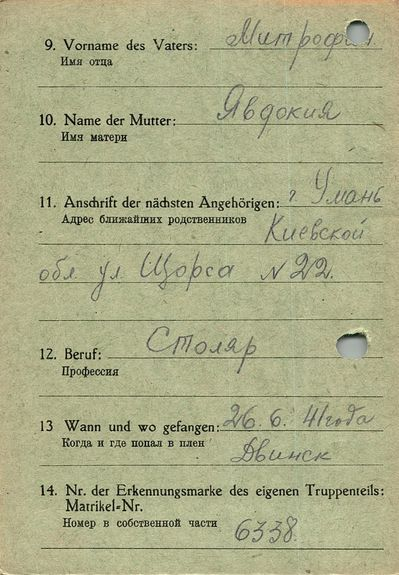 9. Vorname des Vaters: Митрофан
Имя отца
10. Name der Mutter: Явдокия
Имя матери
11. Anschrift der nächsten Angehörigen: г. Умань
Адрес ближайших родственников Киевской
обл ул Щорса N 22.
12. Beruf: Столяр
Профессия
13 Wann und wo gefangen: 26.6.41 года
Когда и где попал в плен Двинск
14. Nr. der Erkennungsmarke des eigenen Truppenteils:
Matrikel-Nr.
Номер в собственной части 6338.